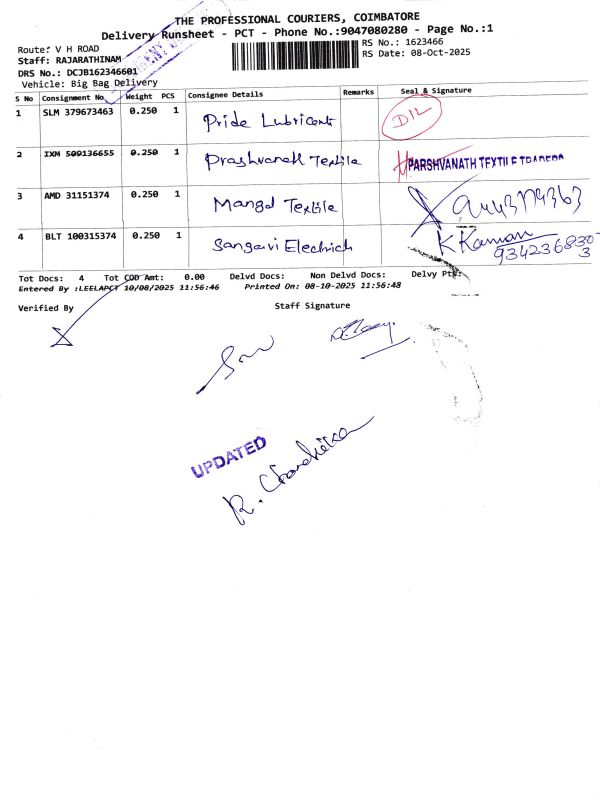 THE PROFESSIONAL COURIERS, COIMBATORE
Delivery Runsheet - PCT - Phone No.:9047080280 - Page No.:1
Route: V H ROAD
RS No.: 1623466
Staff: RAJARATHINAM
RS Date: 08-Oct-2025
DRS No.: DCJB162346601
Vehicle: Big Bag Delivery
S No Consignment No Weight PCS Consignee Details Remarks Seal & Signature
1 SLM 379673463 0.250 1 Pride Lubricant D12
2 IXM 509136655 0.250 1 Prashvanath Textile PARSHVANATH TEXTILE TRADERS
3 AMD 31151374 0.250 1 Mangal Textile
4 BLT 100315374 0.250 1 Sangavi Electrich
Tot Docs: 4 Tot COD Amt: 0.00 Delvd Docs: Non Delvd Docs: Delvy Pt%:
Entered By :LEELAPCT 10/08/2025 11:56:46 Printed On: 08-10-2025 11:56:48
Verified By
Staff Signature
UPDATED